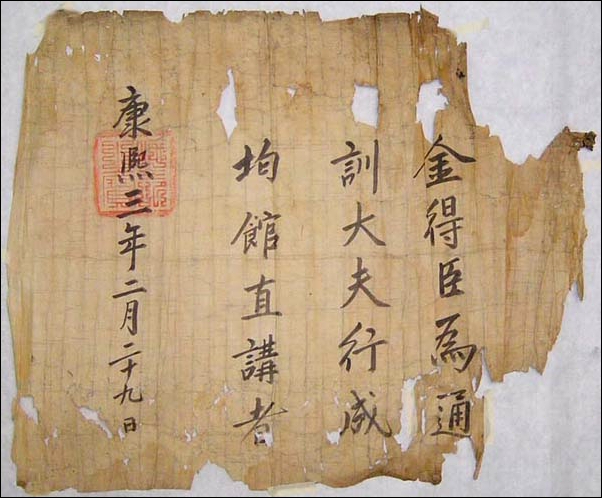 金得臣為通
訓大夫行成
均館直講者
康熙三年二月二十九日